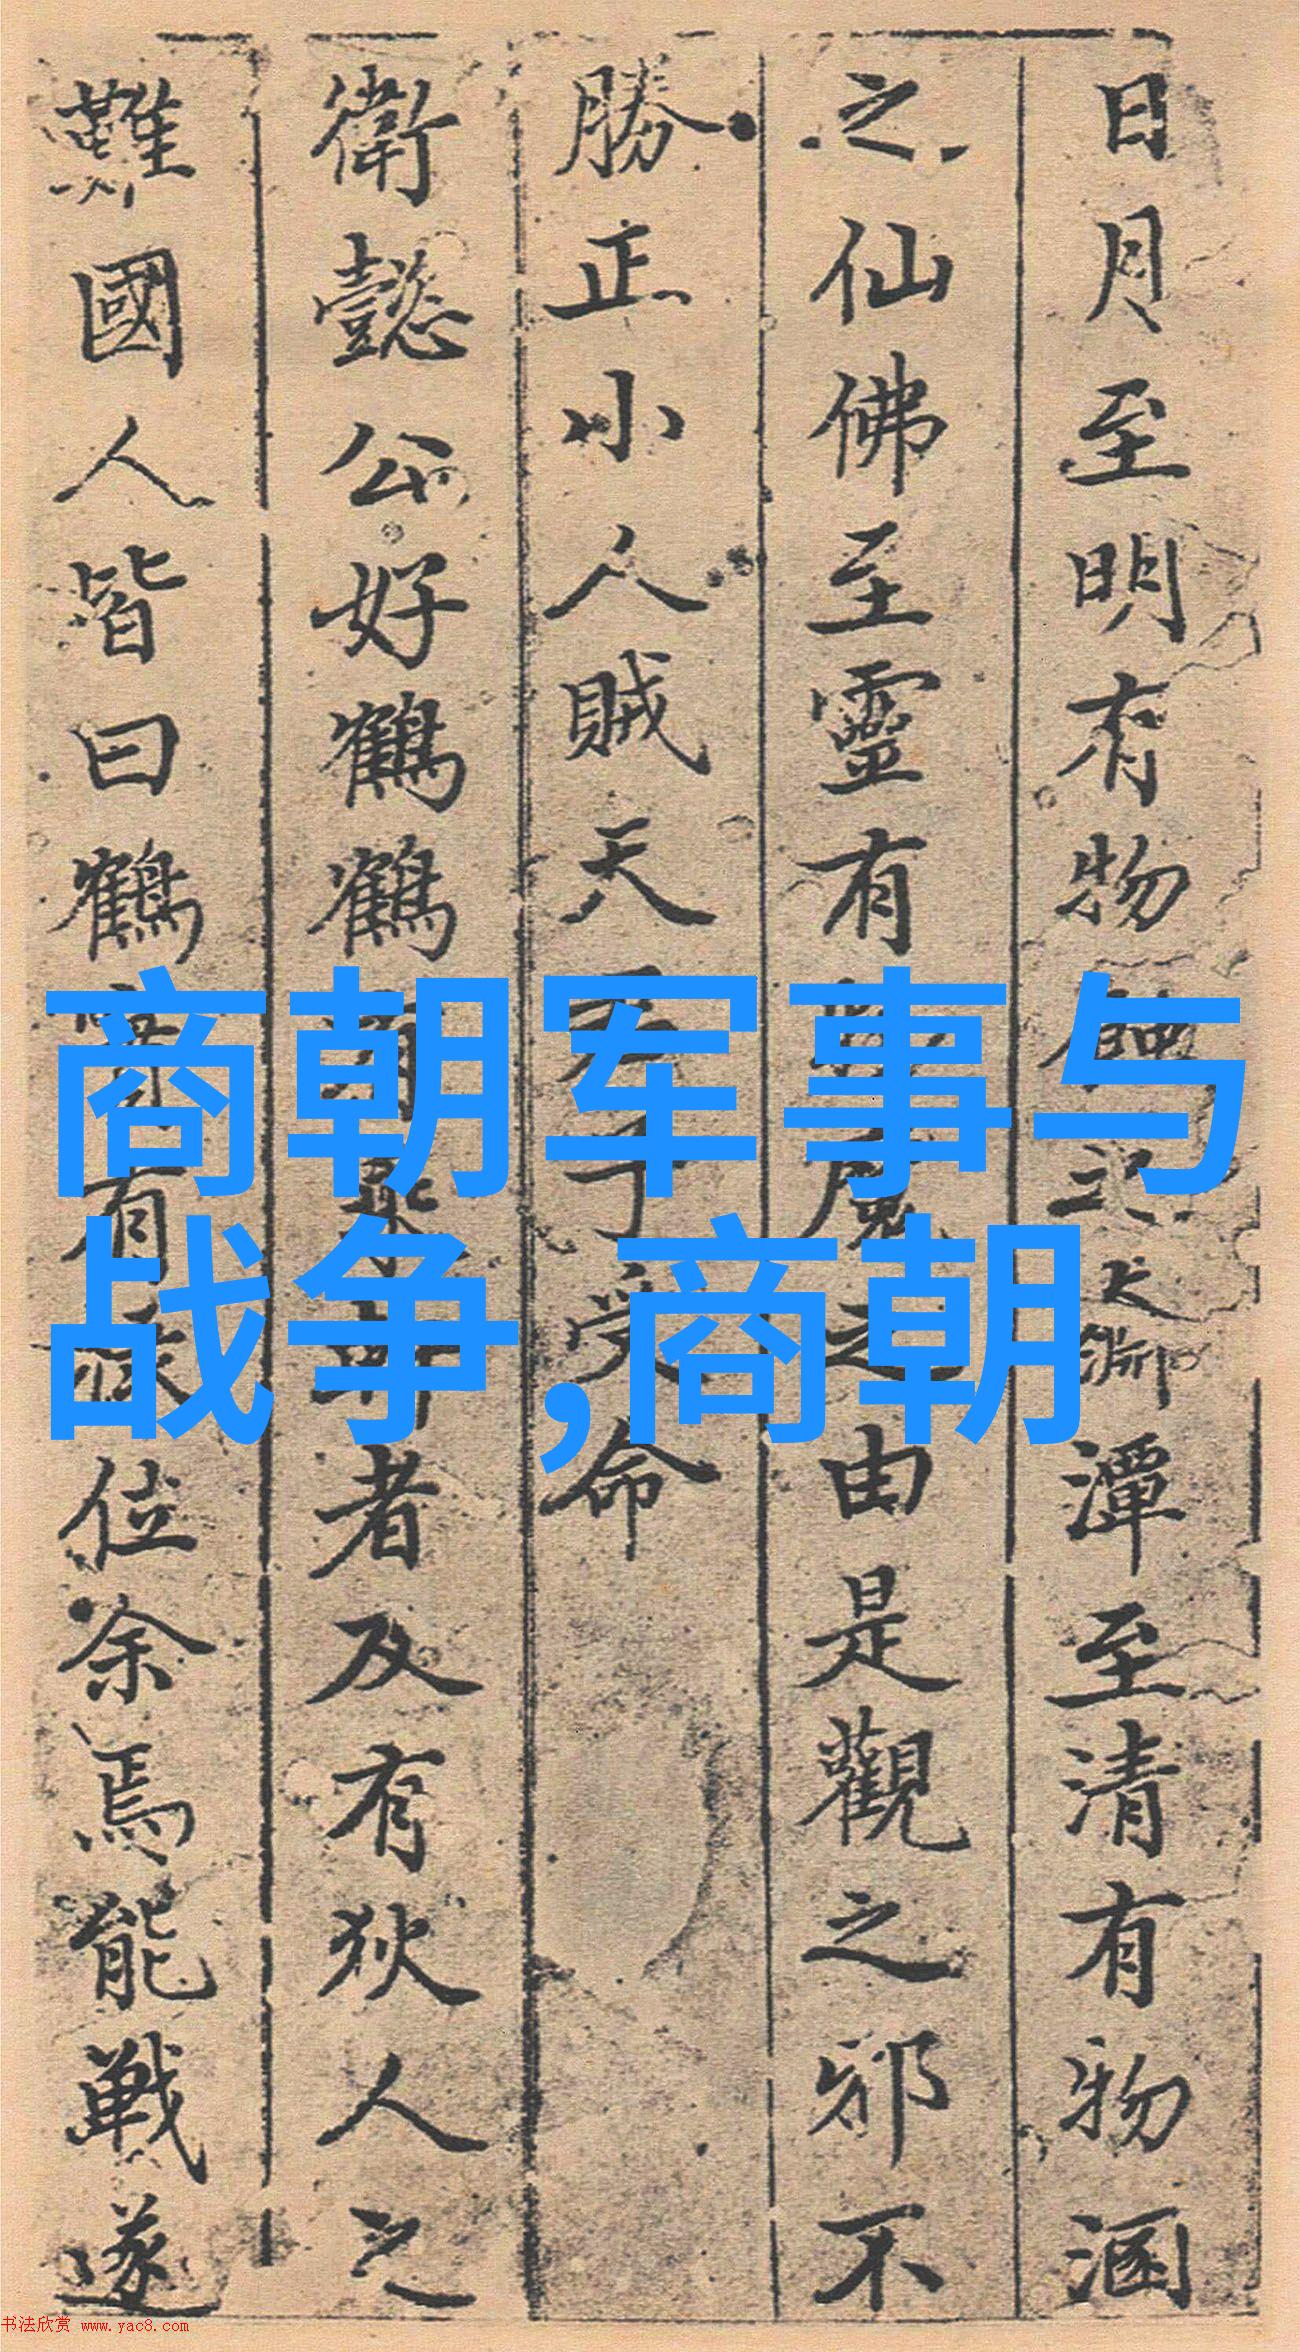 日月至明有物蝕之大淵潭至清有物涵
之仙佛至靈有魔之由是觀之邪不
勝正小人賊天受命
衛懿公好鶴鶴有乘軒者及有狄人之
難國人皆曰鶴實有祿位余焉能戰遂
商朝军事与
战争,商朝
书法欣赏 www.yac8.com